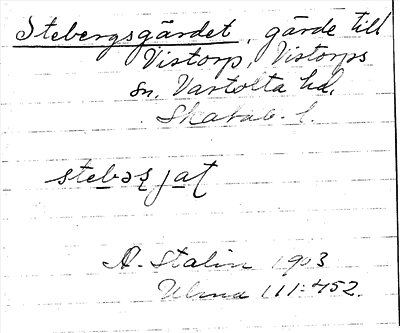 Stebergsgärdet, gärde till
Vistorp, Vistorps
sn, Vartofta hd,
Skarab. l.
A. Stalin 1903
Ulma 111:452.